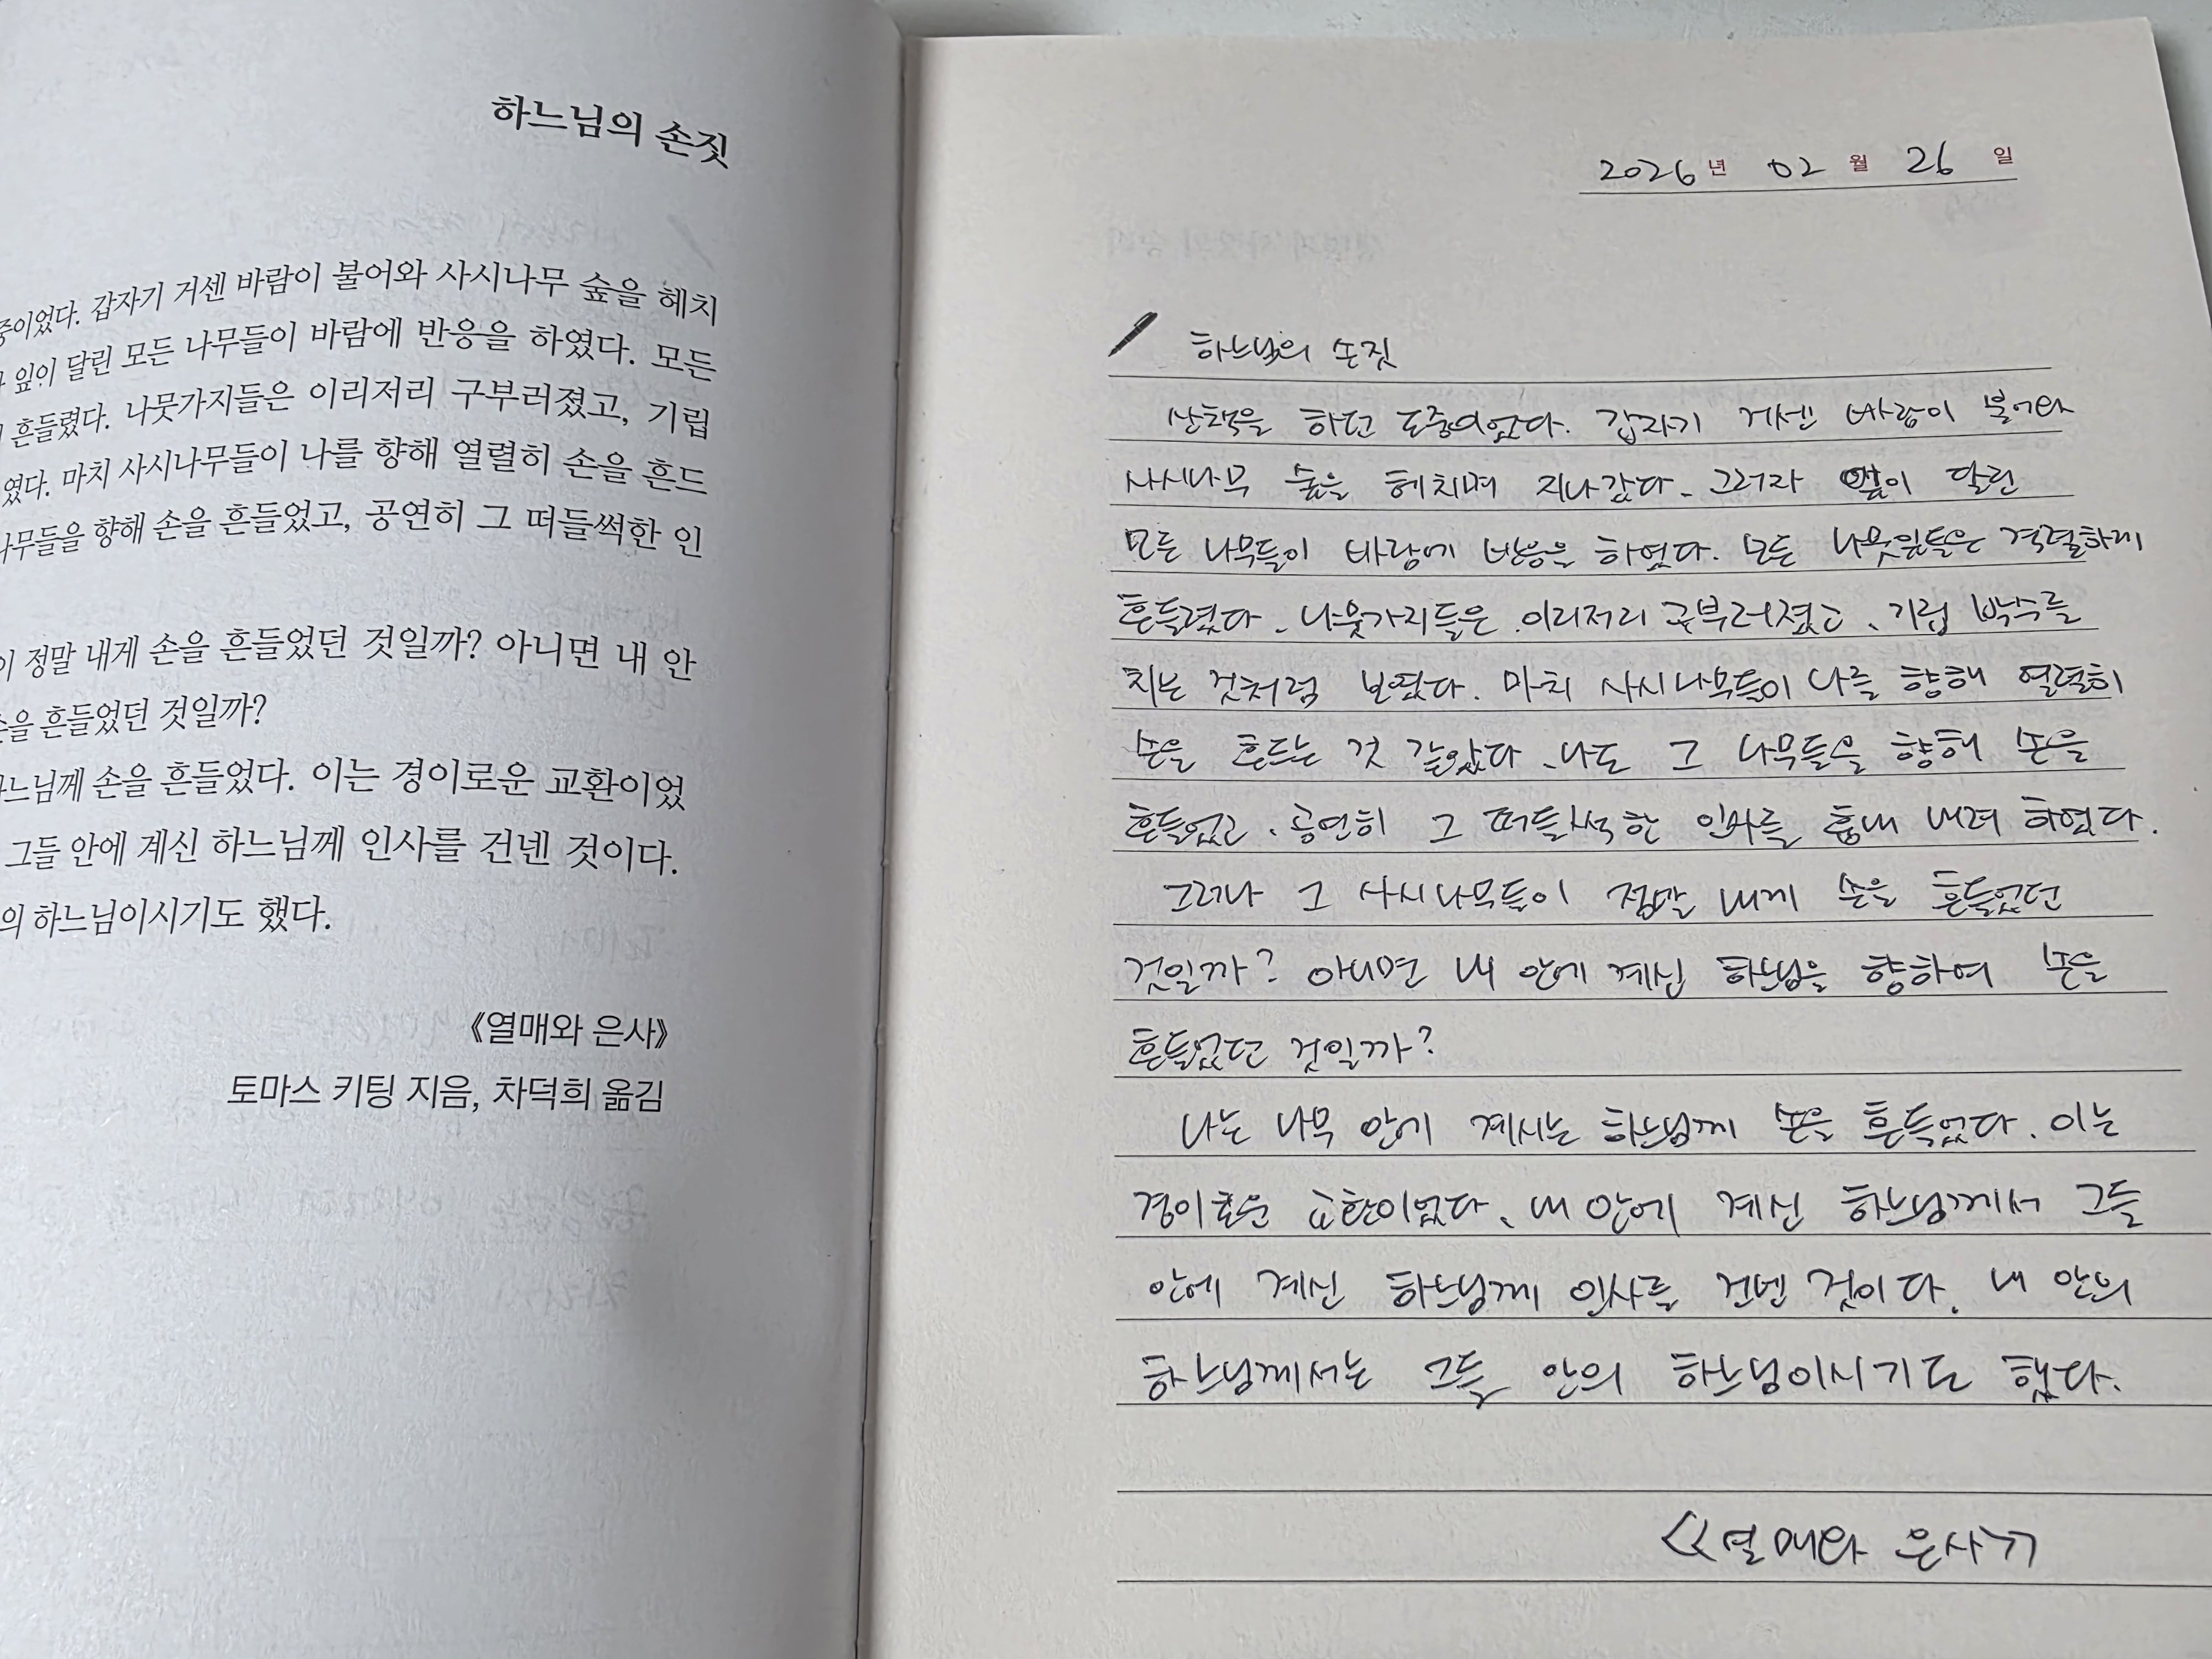 하느님의 손짓
중이었다. 갑자기 거센 바람이 불어와 사시나무 숲을 헤치
잎이 달린 모든 나무들이 바람에 반응을 하였다. 모든
흔들렸다. 나뭇가지들은 이리저리 구부러졌고, 기립
였다. 마치 사시나무들이 나를 향해 열렬히 손을 흔드
나무들을 향해 손을 흔들었고, 공연히 그 떠들썩한 인
이 정말 내게 손을 흔들었던 것일까? 아니면 내 안
손을 흔들었던 것일까?
하느님께 손을 흔들었다. 이는 경이로운 교환이었
그들 안에 계신 하느님께 인사를 건넨 것이다.
의 하느님이시기도 했다.
《열매와 은사》
토마스 키팅 지음, 차덕희 옮김
2026년 02월 26일
하느님의 손짓
산책을 하던 도중이었다. 갑자기 거센 바람이 불어와
사시나무 숲을 헤치며 지나갔다. 그러자 잎이 달린
모든 나무들이 바람에 반응을 하였다. 모든 나뭇잎들은 격렬하게
흔들렸다. 나뭇가지들은 이리저리 구부러졌고, 기립 박수를
치는 것처럼 보였다. 마치 사시나무들이 나를 향해 열렬히
손을 흔드는 것 같았다. 나도 그 나무들을 향해 손을
흔들었고, 공연히 그 떠들썩한 인사를 흉내 내려 하였다.
그러나 그 사시나무들이 정말 내게 손을 흔들었던
것일까? 아니면 내 안에 계신 하느님을 향하여 손을
흔들었던 것일까?
나는 나무 안에 계시는 하느님께 손을 흔들었다. 이는
경이로운 교환이었다. 내 안에 계신 하느님께서 그들
안에 계신 하느님께 인사를 건넨 것이다. 내 안의
하느님께서는 그들 안의 하느님이시기도 했다.
《열매와 은사》